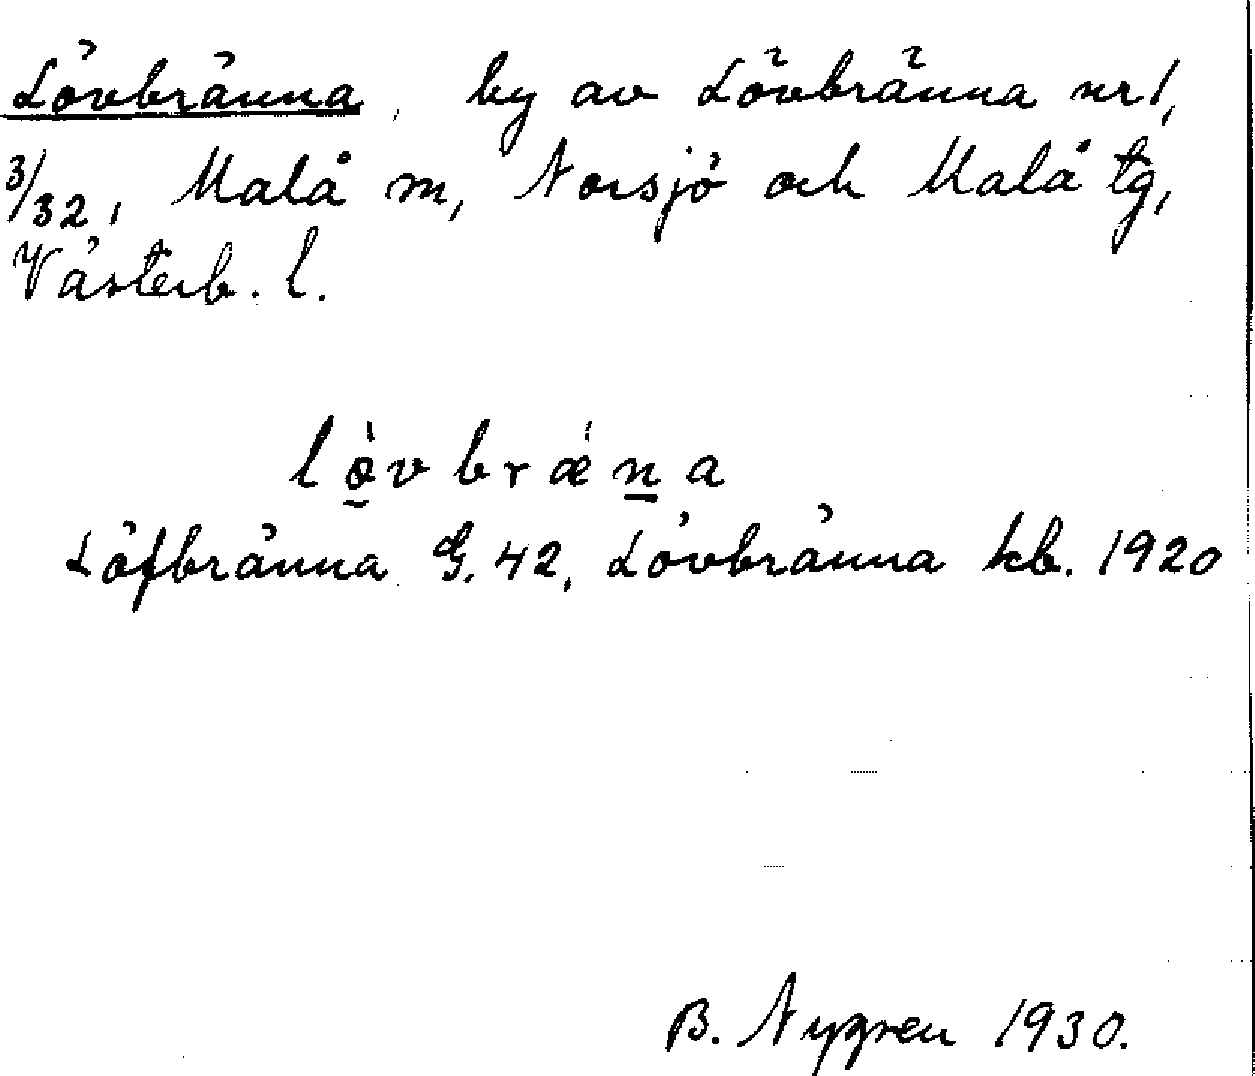 Lövbränna, by av Lövbränna nr 1,
3/32, Malå m, Norsjö och Malå tg,
Västerb. l.
lø̀vbrǽn̲a
Löfbränna G. 42, Lövbränna kb. 1920
B. Nygren 1930.